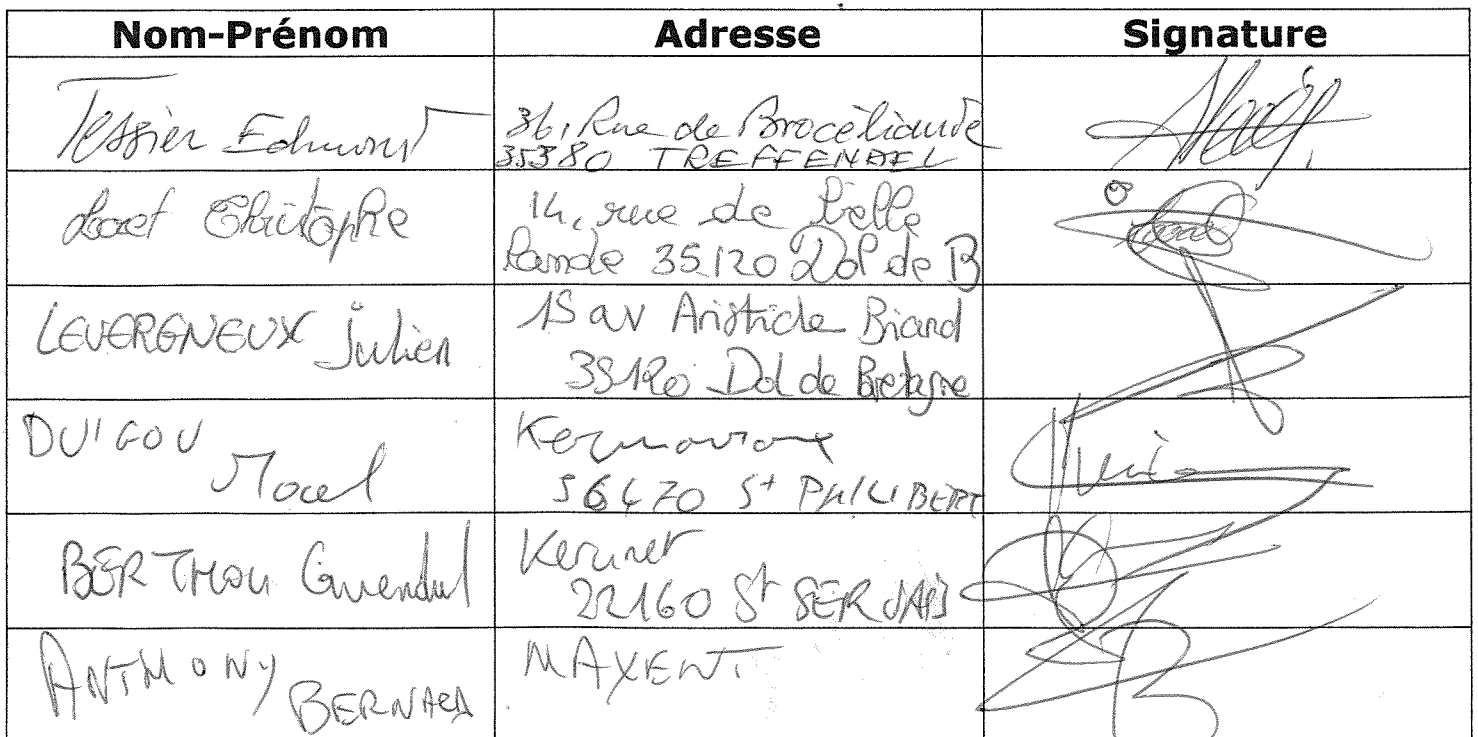 Nom-Prénom Adresse Signature
Tessier Edmond
36, Rue de Brocéliande
35380 TREFFENDEL
Loret Christophe
14, rue de Lielle
lande 35120 Dol de B
LEVERGNEUX Julien
15 av Aristide Briand
35120 Dol de Bretagne
DUIGOU
Marcel
56470 St PHILIBERT
BERTHOU Gwendal
22160 St SERVAIS
ANTHONY
BERNARD
MAXENT